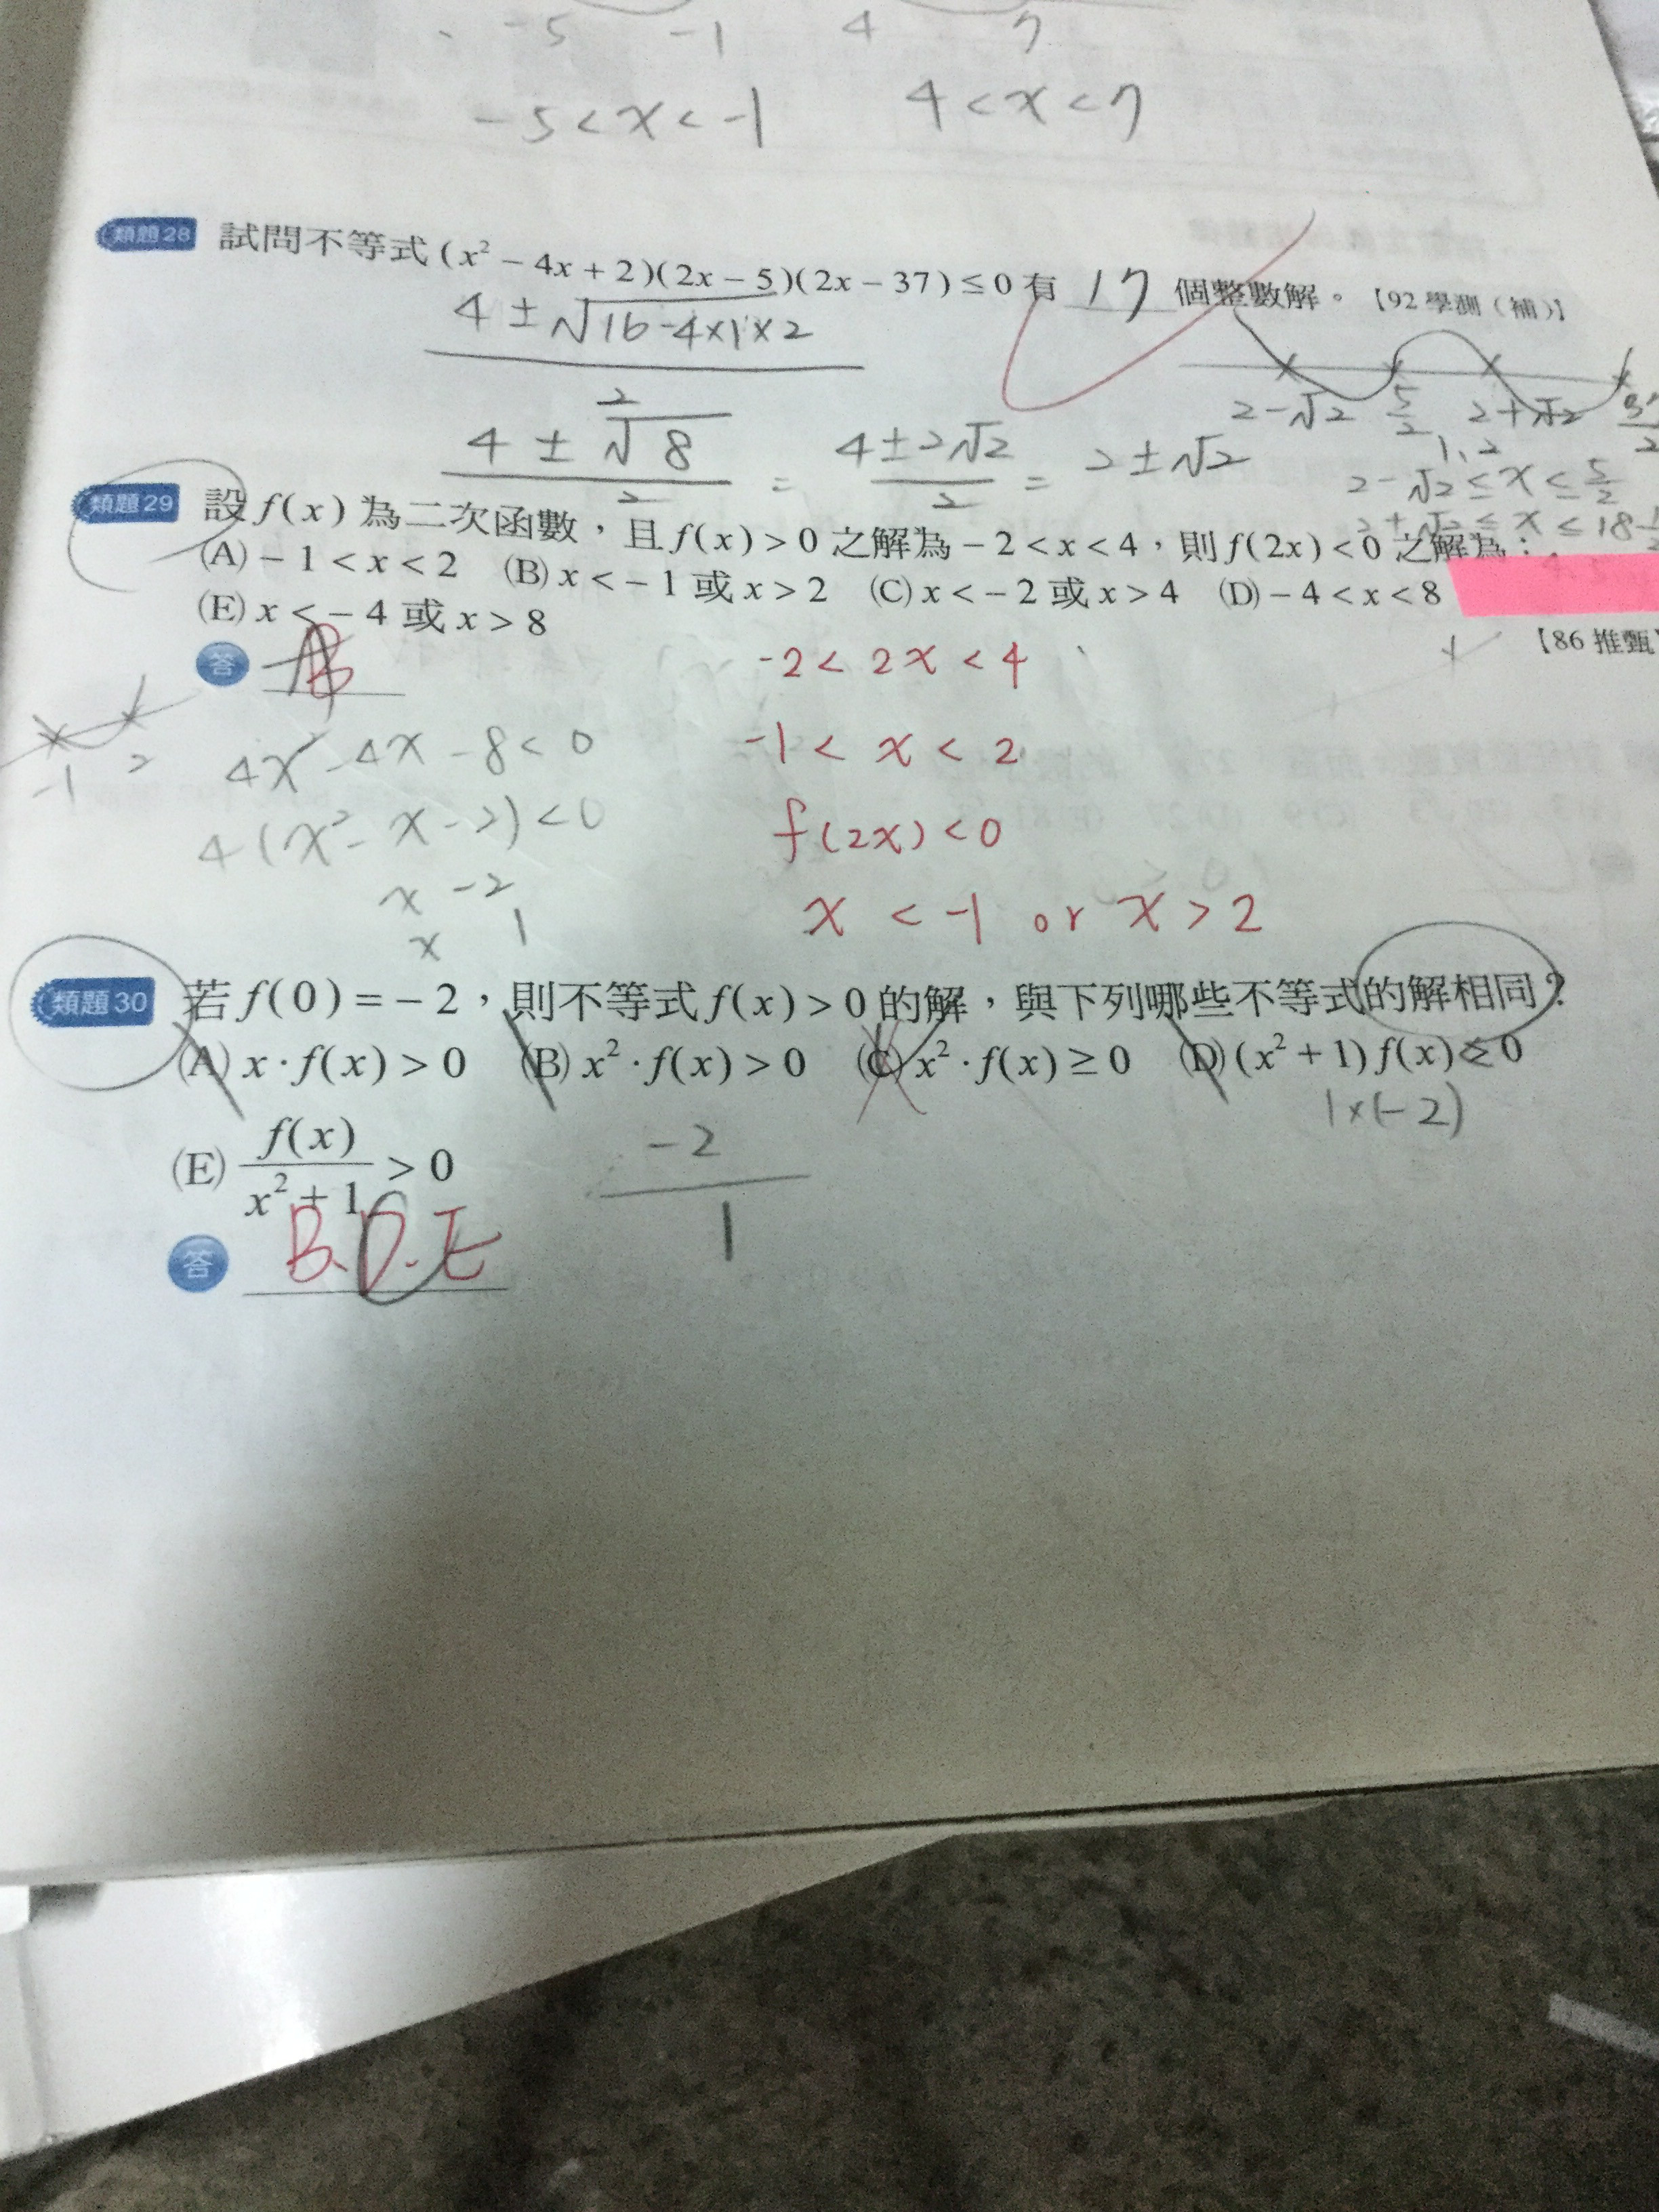 -5 -1 4 7
-5 < x < -1 4 < x < 7
類題28 試問不等式 (x² - 4x + 2)(2x - 5)(2x - 37) ≤ 0 有 17 個整數解。【92 學測(補)】
4 ± √16-4×1×2
2
2-√2 5/2 2+√2
4 ± √8 / 2 = 4±2√2 / 2 = 2 ± √2
1、2
2-√2 ≤ x ≤ 5/2
2+√2 ≤ x ≤ 18
類題29 設 f(x) 為二次函數,且 f(x) > 0 之解為 -2 < x < 4,則 f(2x) < 0 之解為:
(A) -1 < x < 2 (B) x < -1 或 x > 2 (C) x < -2 或 x > 4 (D) -4 < x < 8
(E) x < -4 或 x > 8
【86 推甄】
答 B
-2 < 2x < 4
-1 2
4x² - 4x - 8 < 0
-1 < x < 2
4(x² - x - 2) < 0
f(2x) < 0
x -2
x 1
x < -1 or x > 2
類題30 若 f(0) = -2,則不等式 f(x) > 0 的解,與下列哪些不等式的解相同?
(A) x · f(x) > 0 (B) x² · f(x) > 0 (C) x² · f(x) ≥ 0 (D) (x² + 1) f(x) ≥ 0
1×(-2)
(E) f(x) / x² + 1 > 0
-2
1
答 B.D.E